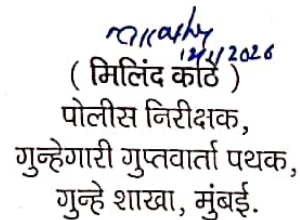 ( मिलिंद काठे )
पोलीस निरीक्षक,
गुन्हेगारी गुप्तवार्ता पथक,
गुन्हे शाखा, मुंबई.